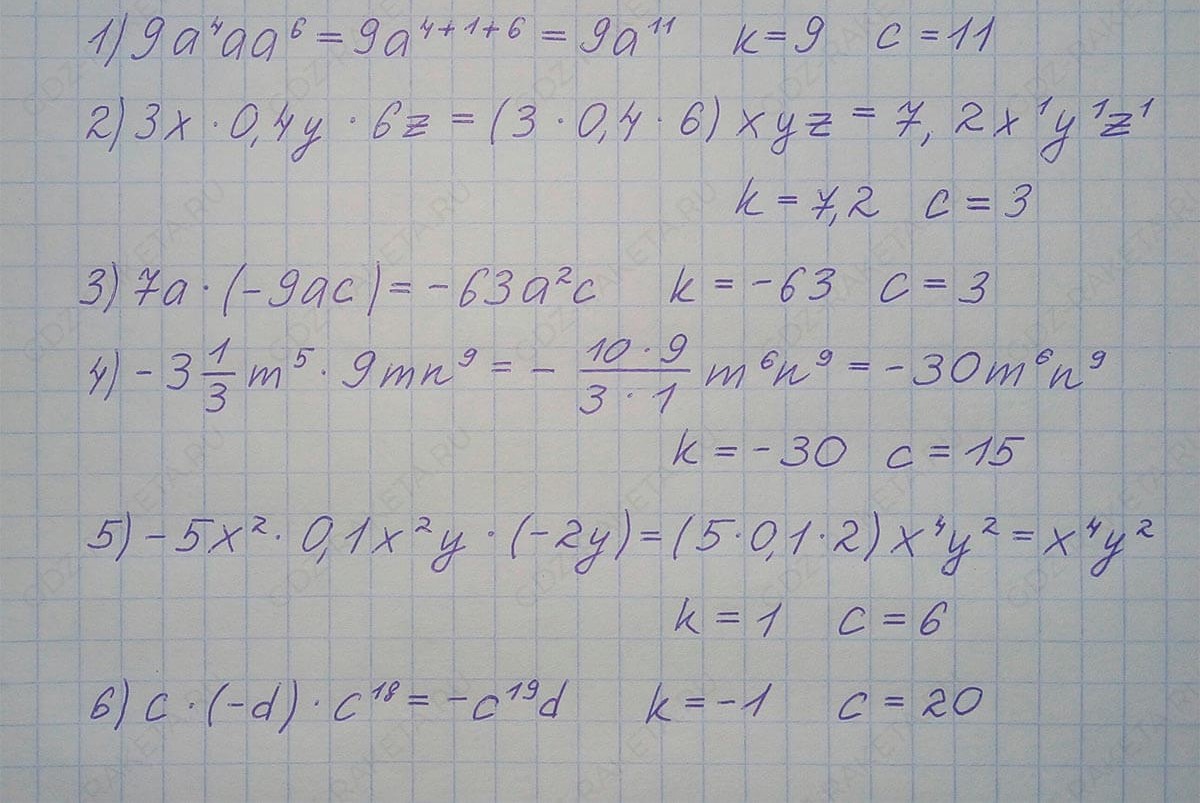 1) 9a⁴aa⁶ = 9a⁴⁺¹⁺⁶ = 9a¹¹ k = 9 c = 11
2) 3x · 0,4y · 6z = (3 · 0,4 · 6) xyz = 7,2x¹y¹z¹
k = 7,2 c = 3
3) 7a · (-9ac) = -63a²c k = -63 c = 3
4) -3 1/3 m⁵ · 9mn⁹ = - (10 · 9)/(3 · 1) m⁶n⁹ = -30m⁶n⁹
k = -30 c = 15
5) -5x² · 0,1x²y · (-2y) = (5 · 0,1 · 2) x⁴y² = x⁴y²
k = 1 c = 6
6) c · (-d) · c¹⁸ = -c¹⁹d k = -1 c = 20
GDZ-RAKETA.RU